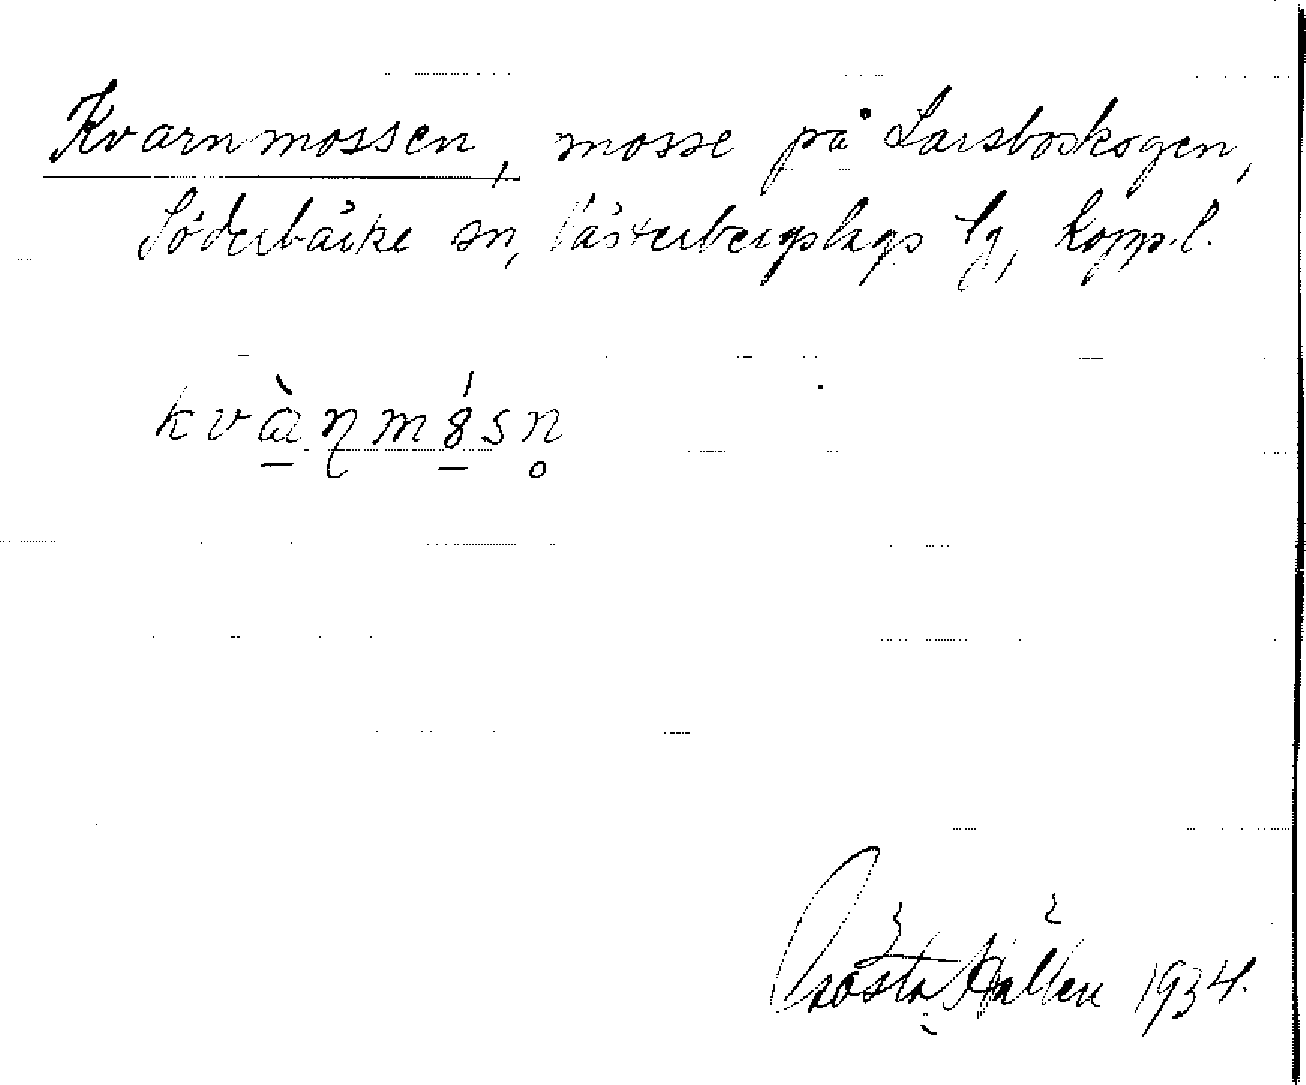 Kvarnmossen, mosse på Larsboskogen,
Söderbärke sn, Västerbergslags lg, Kopp.l.
kvànmósn
Gösta 1934.